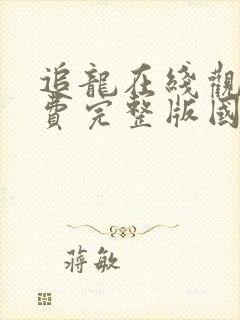 追龍在綫觀
費完整版國
蔣敏